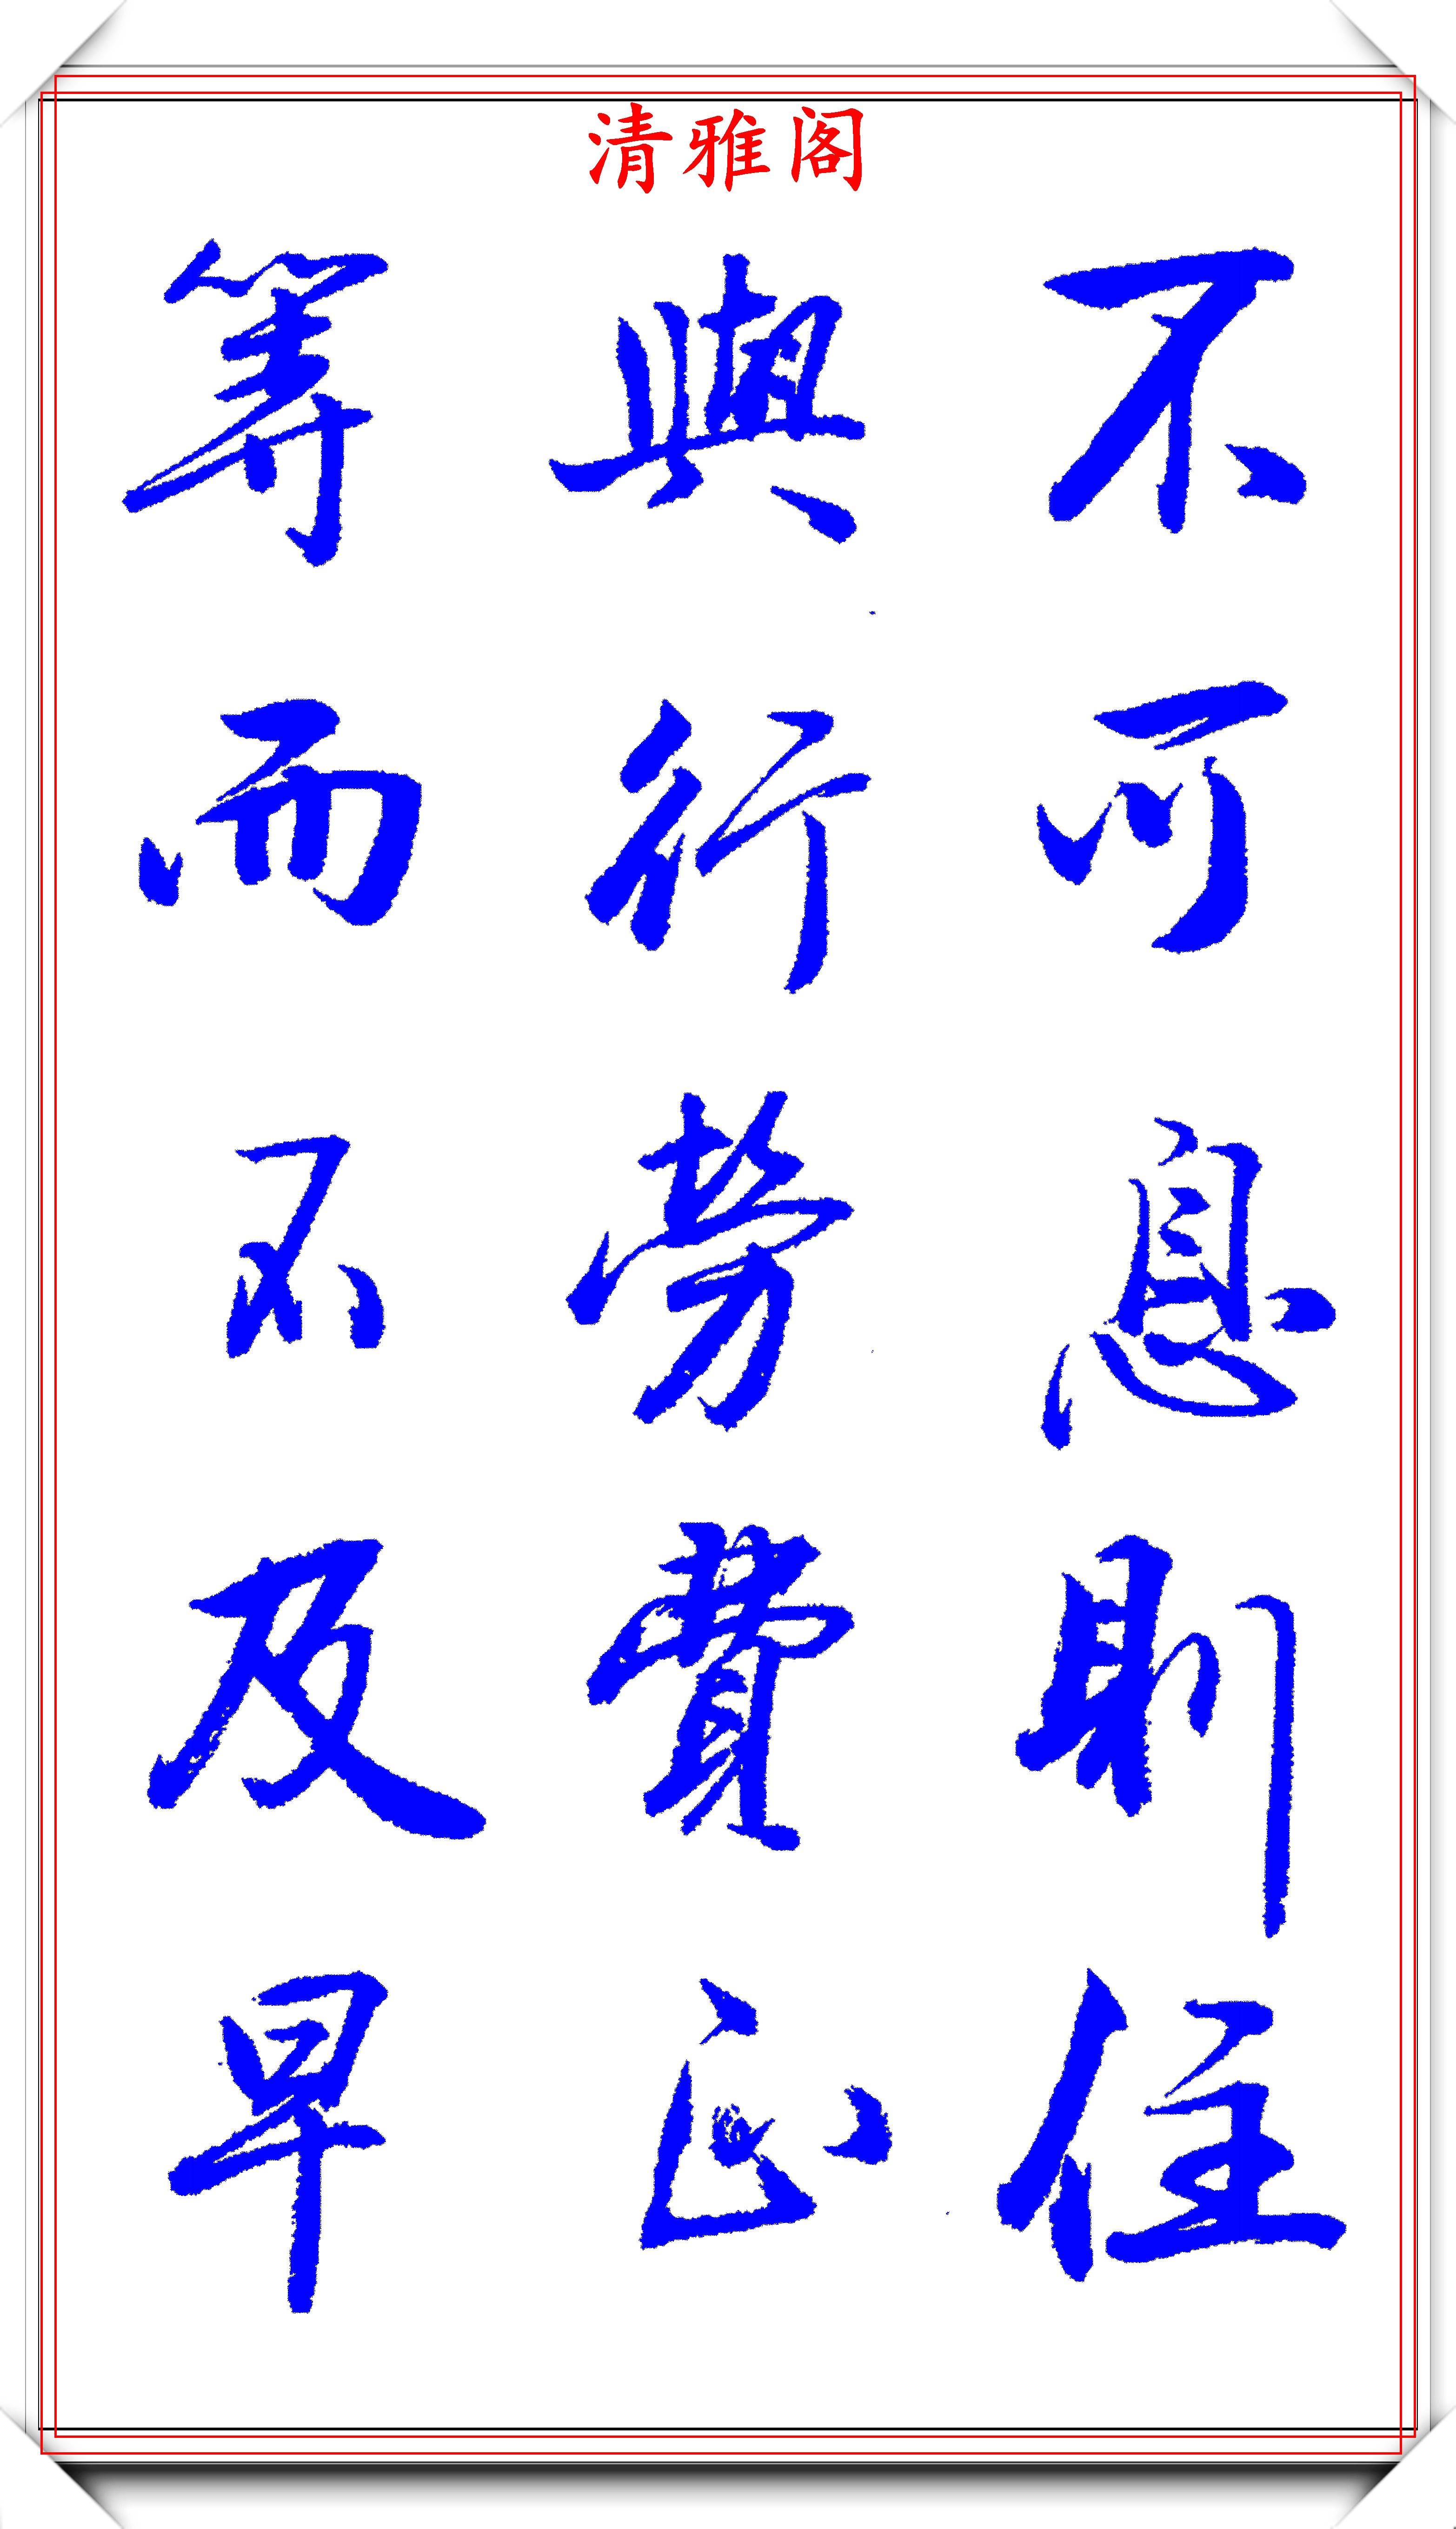 清雅阁
不可息則住
與行勞費正
等而不及早